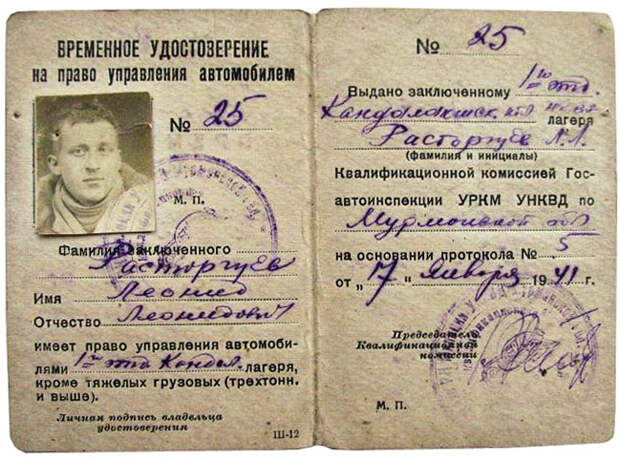 ВРЕМЕННОЕ УДОСТОВЕРЕНИЕ
на право управления автомобилем
№ 25
М. П.
Фамилия заключенного
Расторгуев
Имя Леонид
Отчество Леонидович
имеет право управления автомоби-
лями 1го отд Кандал. лагеря,
кроме тяжелых грузовых (трехтонн.
и выше).
Личная подпись владельца
удостоверения
Ш-12
№ 25
Выдано заключенному 1го отд.
Кандалакшск. лагеря
Расторгуев Л.Л.
(фамилия и инициалы)
Квалификационной комиссией Гос-
автоинспекции УРКМ УНКВД по
Мурманской обл
на основании протокола № 5
от „17" января 1941 г.
Председатель
Квалификационной
комиссии
М. П.